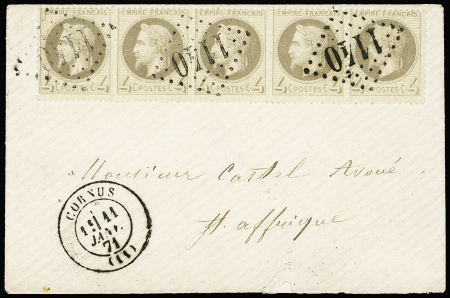 EMPIRE FRANÇAIS EMPIRE FRANÇAIS EMPIRE FRANÇAIS EMPIRE FRANÇAIS EMPIRE FRANÇAIS
1140 1140 1140
4 C POSTES C 4 4 C POSTES C 4 4 C POSTES C 4 4 C POSTES C 4 4 C POSTES C 4
Monsieur Castel Avoué
St. affrique
CORNUS
11
JANV.
71
(11)